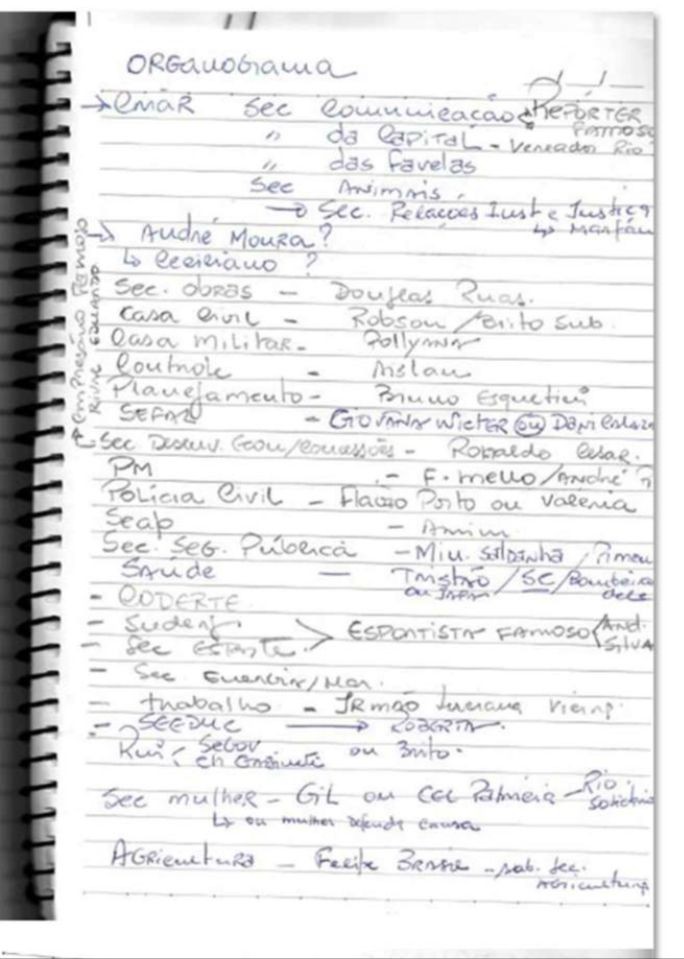 ORGanograma
→ CRIAR Sec Comunicação ← REPÓRTER FAMOSO
" da Capital - Vereador Rio
" das favelas
Sec Animais
→ Sec. Relações Inst e Justiça
↳ Marfan
→ André Moura?
↳ Ceciliano ?
Sec. obras - Douglas Ruas.
Casa Civil - Robson / Brito Sub.
Casa militar - Pollyanna
Controle - Aislan
Planejamento - Bruno
SEFAZ - GIOVANA ou Dani
Sec Desenv. Econ/concessões - Ronaldo Cesar.
Empresário Famoso
PM - F. mello / André ?
Polícia Civil - Flavio Porto ou Valeria
Seap - Amim
Sec. SEG. Pública - Min. Saldanha /
Saude - Tristão / SC / Bombeiro
ou dele
- CODERTE
- Suderj
- Sec ESPORTE > ESPORTISTA FAMOSO < And. Silva
- Sec Energia/Mar.
- trabalho - IRmão Luciana Vieira
- SEEDUC → ROBERTA.
Rui < SeGov ou Brito.
ch Gabinete
Sec mulher - GiL ou Cel Palmeia - Rio Solidário
↳ ou mulher Defende causa
AGRicultuRa - Felipe - sub. Sec. Agricultura